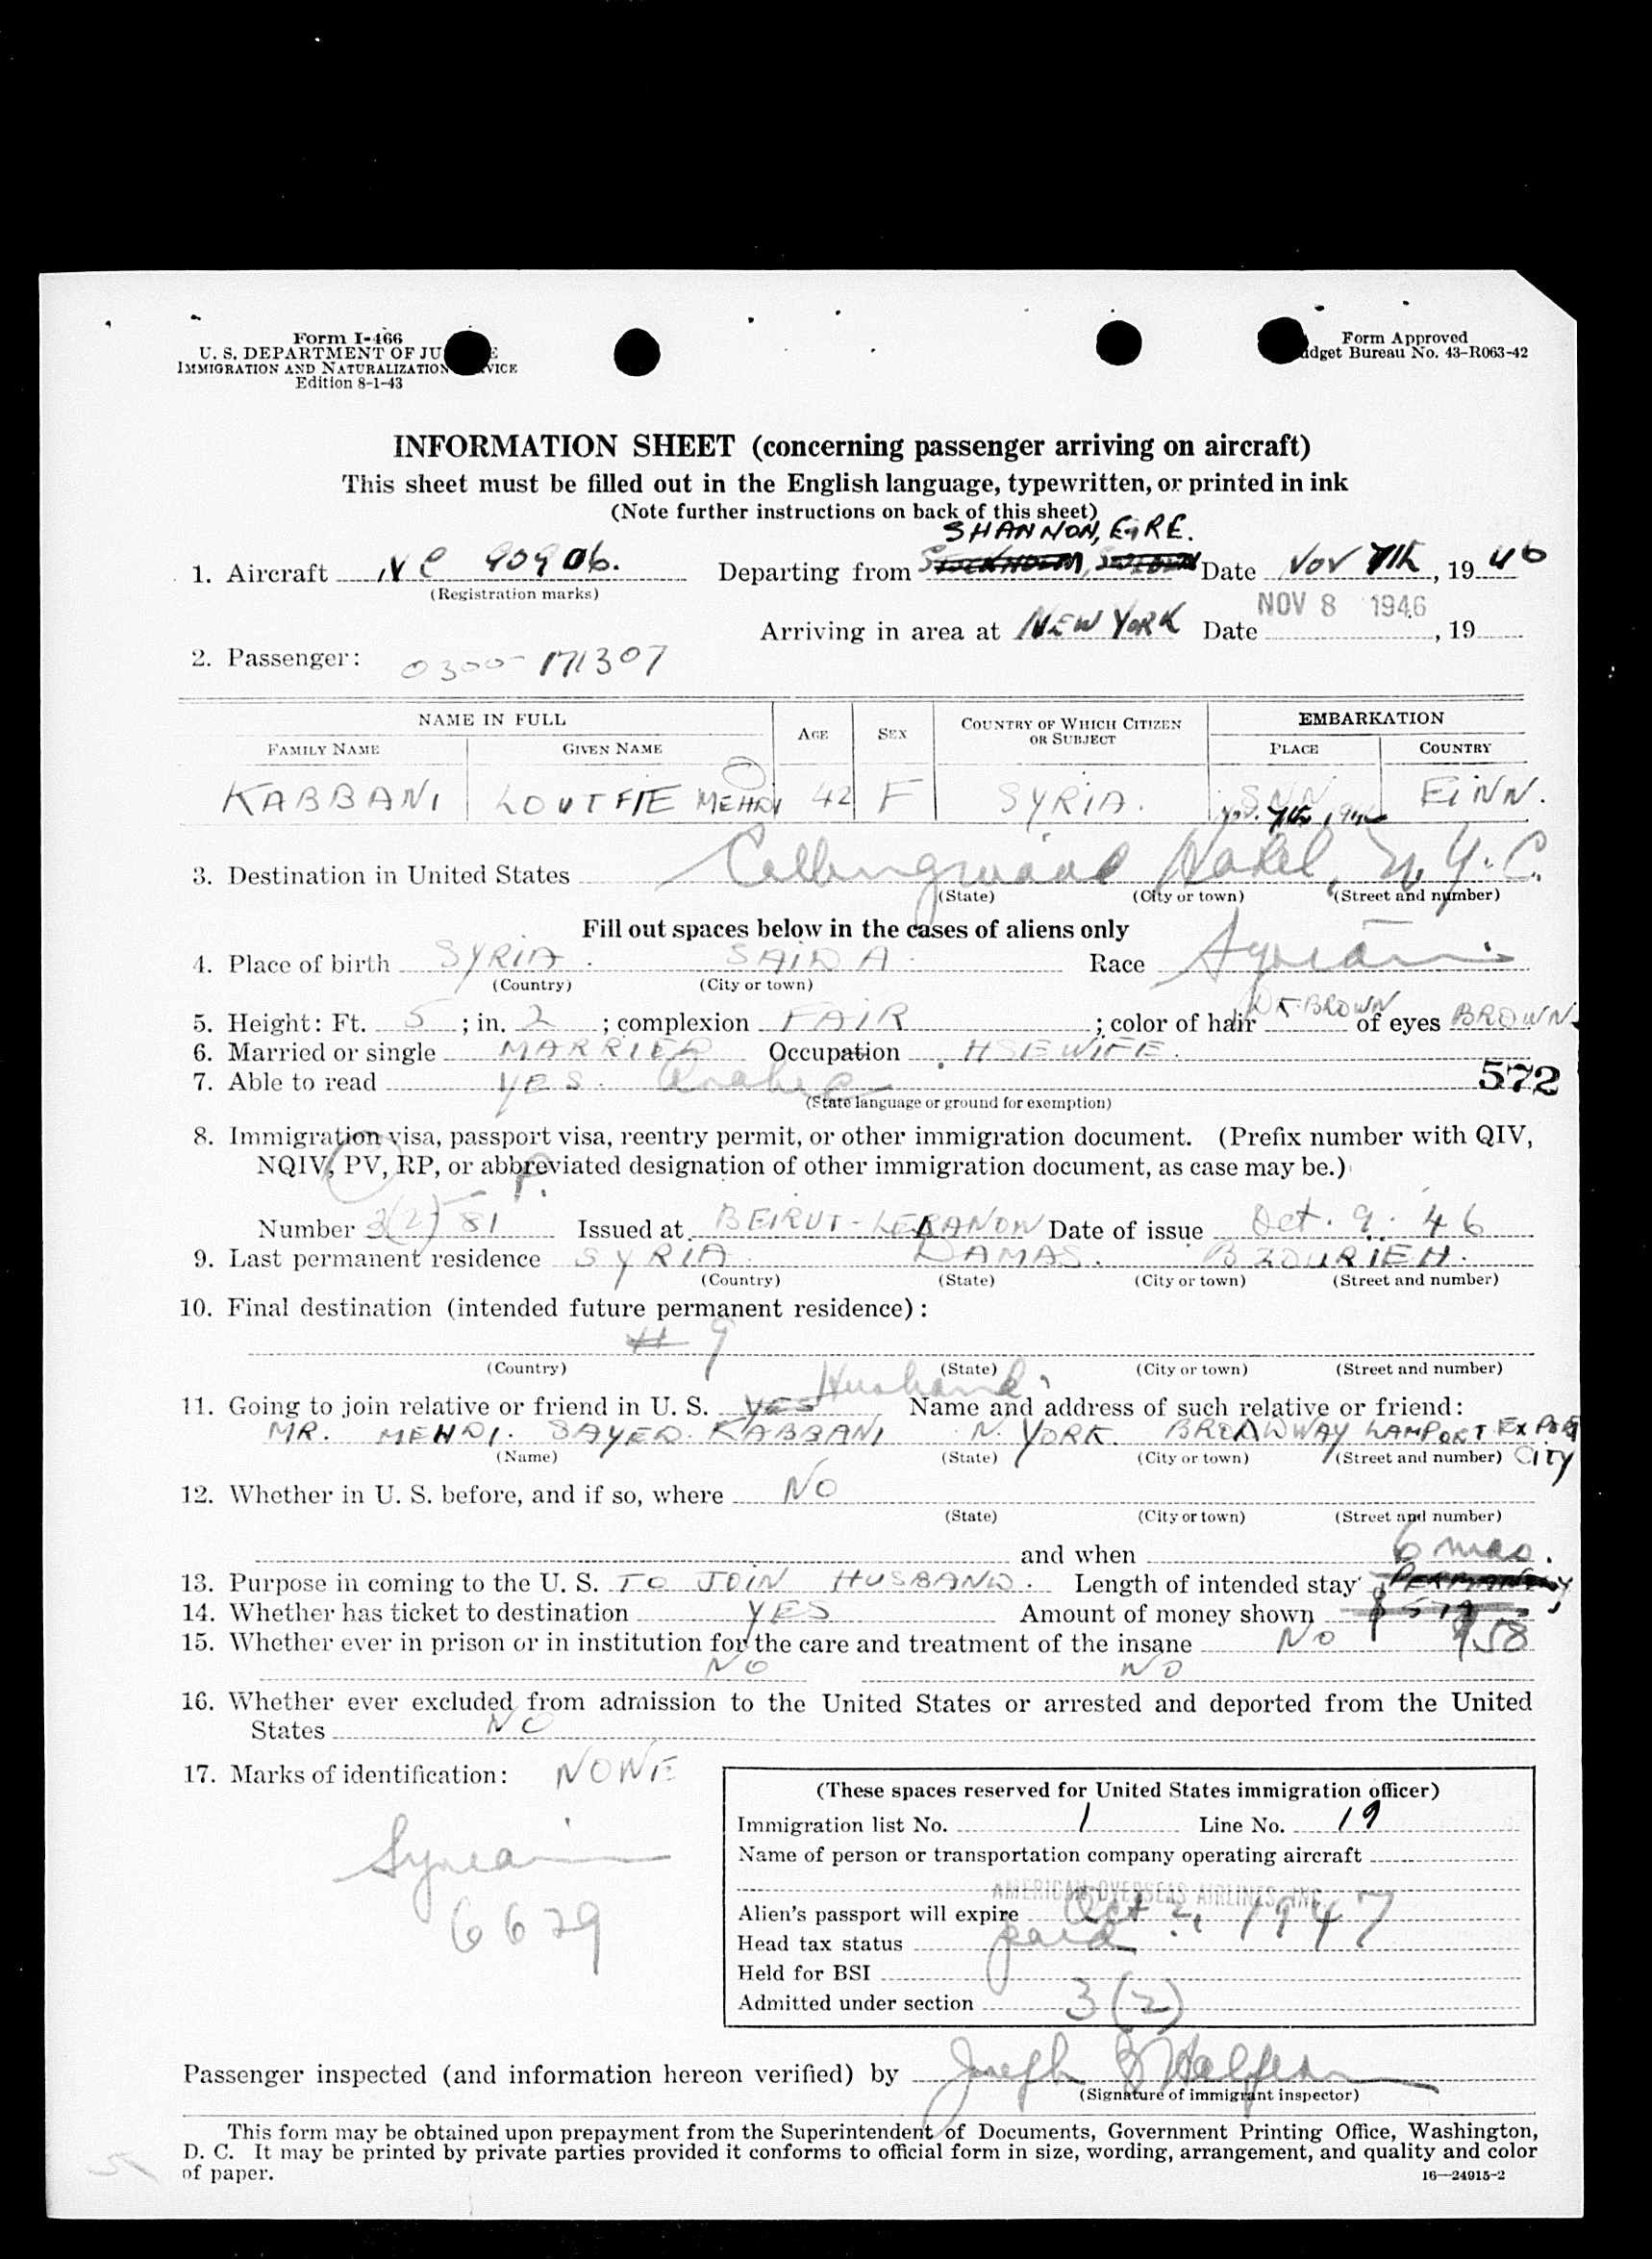 Form I-466
U. S. DEPARTMENT OF JU E
IMMIGRATION AND NATURALIZATION VICE
Edition 8-1-43
Form Approved
dget Bureau No. 43-R063-42
INFORMATION SHEET (concerning passenger arriving on aircraft)
This sheet must be filled out in the English language, typewritten, or printed in ink
(Note further instructions on back of this sheet)
SHANNON, EIRE.
1. Aircraft NC 90906. Departing from STOCKHOLM, SWEDEN Date NOV 7th, 1946
(Registration marks)
NOV 8 1946
Arriving in area at NEW YORK Date , 19
2. Passenger: 0300-171307
NAME IN FULL AGE SEX COUNTRY OF WHICH CITIZEN OR SUBJECT EMBARKATION
FAMILY NAME GIVEN NAME PLACE COUNTRY
KABBANI LOUTFIE MEHDI 42 F SYRIA. SNN EINN.
Nov. 7th 1946
3. Destination in United States Collingwood Hotel, N.Y.C.
(State) (City or town) (Street and number)
Fill out spaces below in the cases of aliens only
4. Place of birth SYRIA. SAIDA. Race Syrian
(Country) (City or town)
5. Height: Ft. 5; in. 2; complexion FAIR; color of hair DK-BROWN of eyes BROWN
6. Married or single MARRIED Occupation HSEWIFE.
7. Able to read YES. Arabic
572
(State language or ground for exemption)
8. Immigration visa, passport visa, reentry permit, or other immigration document. (Prefix number with QIV,
NQIV, PV, RP, or abbreviated designation of other immigration document, as case may be.)
P.
Number 3(2) 81 Issued at BEIRUT-LEBANON Date of issue Oct. 9. 46
9. Last permanent residence SYRIA DAMAS. BZOURIEH.
(Country) (State) (City or town) (Street and number)
10. Final destination (intended future permanent residence):
# 9
(Country) (State) (City or town) (Street and number)
Husband
11. Going to join relative or friend in U. S. YES Name and address of such relative or friend:
MR. MEHDI. SAYED. KABBANI N. YORK. BROADWAY LAMPORT EXPORT
(Name) (State) (City or town) (Street and number) CITY
12. Whether in U. S. before, and if so, where NO
(State) (City or town) (Street and number)
and when
6 mos.
13. Purpose in coming to the U. S. TO JOIN HUSBAND. Length of intended stay
14. Whether has ticket to destination YES Amount of money shown
15. Whether ever in prison or in institution for the care and treatment of the insane NO
NO NO
16. Whether ever excluded from admission to the United States or arrested and deported from the United
States NO
17. Marks of identification: NONE
Syrian
6629
(These spaces reserved for United States immigration officer)
Immigration list No. 1 Line No. 19
Name of person or transportation company operating aircraft
AMERICAN OVERSEAS AIRLINES, INC.
Alien's passport will expire Oct 2, 1947
Head tax status paid
Held for BSI
Admitted under section 3(2)
Passenger inspected (and information hereon verified) by Joseph B Halpern
(Signature of immigrant inspector)
This form may be obtained upon prepayment from the Superintendent of Documents, Government Printing Office, Washington,
D. C. It may be printed by private parties provided it conforms to official form in size, wording, arrangement, and quality and color
of paper.
16—24915-2